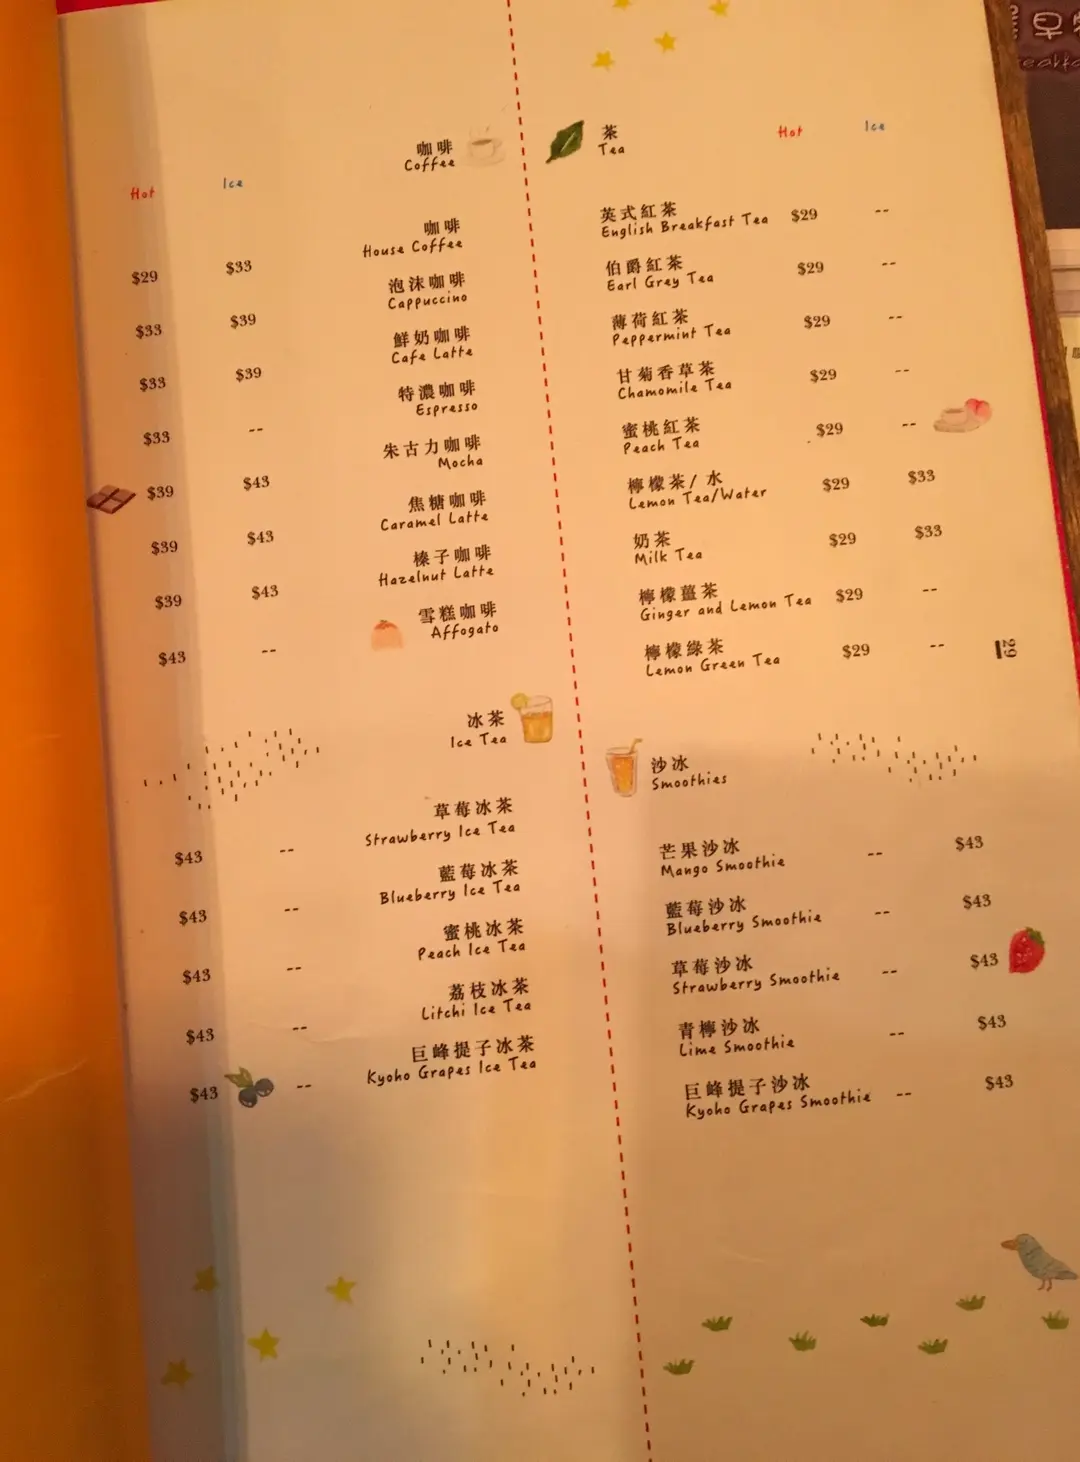 咖啡
Coffee
Hot Ice
咖啡
House Coffee
$29 $33
泡沫咖啡
Cappuccino
$33 $39
鮮奶咖啡
Cafe Latte
$33 $39
特濃咖啡
Espresso
$33 --
朱古力咖啡
Mocha
$39 $43
焦糖咖啡
Caramel Latte
$39 $43
榛子咖啡
Hazelnut Latte
$39 $43
雪糕咖啡
Affogato
$43 --
冰茶
Ice Tea
草莓冰茶
Strawberry Ice Tea
$43 --
藍莓冰茶
Blueberry Ice Tea
$43 --
蜜桃冰茶
Peach Ice Tea
$43 --
荔枝冰茶
Litchi Ice Tea
$43 --
巨峰提子冰茶
Kyoho Grapes Ice Tea
$43 --
茶
Tea
Hot Ice
英式紅茶
English Breakfast Tea $29 --
伯爵紅茶
Earl Grey Tea $29 --
薄荷紅茶
Peppermint Tea $29 --
甘菊香草茶
Chamomile Tea $29 --
蜜桃紅茶
Peach Tea $29 --
檸檬茶/ 水
Lemon Tea/Water $29 $33
奶茶
Milk Tea $29 $33
檸檬薑茶
Ginger and Lemon Tea $29 --
檸檬綠茶
Lemon Green Tea $29 --
29
沙冰
Smoothies
芒果沙冰
Mango Smoothie -- $43
藍莓沙冰
Blueberry Smoothie -- $43
草莓沙冰
Strawberry Smoothie -- $43
青檸沙冰
Lime Smoothie -- $43
巨峰提子沙冰
Kyoho Grapes Smoothie -- $43